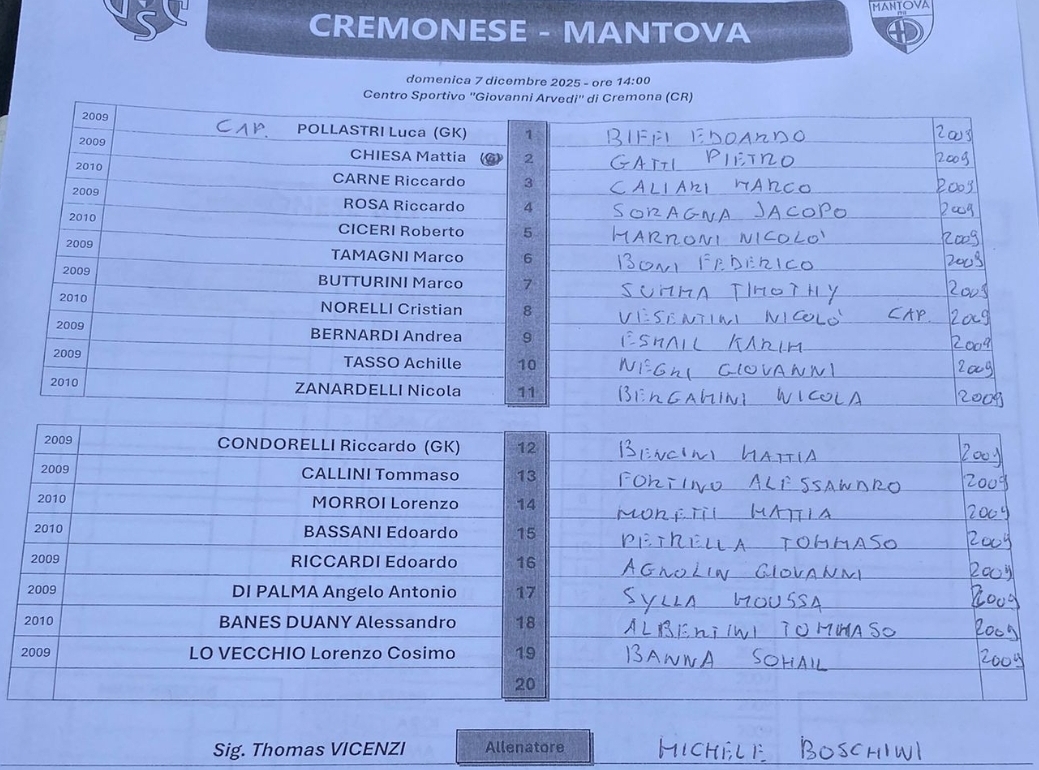 CSC
MANTOVA
CREMONESE - MANTOVA
domenica 7 dicembre 2025 - ore 14:00
Centro Sportivo "Giovanni Arvedi" di Cremona (CR)
2009 CAP. POLLASTRI Luca (GK) 1 BIFFI EDOARDO 2009
2009 CHIESA Mattia (G) 2 GATTI PIETRO 2009
2010 CARNE Riccardo 3 CALIARI MARCO 2009
2009 ROSA Riccardo 4 SORAGNA JACOPO 2009
2010 CICERI Roberto 5 MARRONI NICOLO' 2009
2009 TAMAGNI Marco 6 BONI FEDERICO 2009
2009 BUTTURINI Marco 7 SUMMA TIMOTHY 2009
2010 NORELLI Cristian 8 VESENTINI NICOLO' CAP. 2009
2009 BERNARDI Andrea 9 ESMAIL KARIM 2009
2009 TASSO Achille 10 NEGRI GIOVANNI 2009
2010 ZANARDELLI Nicola 11 BERGAMINI NICOLA 2009
2009 CONDORELLI Riccardo (GK) 12 BENCINI MATTIA 2009
2009 CALLINI Tommaso 13 FORTINO ALESSANDRO 2009
2010 MORROI Lorenzo 14 MORETTI MATTIA 2009
2010 BASSANI Edoardo 15 PETRELLA TOMMASO 2009
2009 RICCARDI Edoardo 16 AGNOLIN GIOVANNI 2009
2009 DI PALMA Angelo Antonio 17 SYLLA MOUSSA 2009
2010 BANES DUANY Alessandro 18 ALBERTINI TOMMASO 2009
2009 LO VECCHIO Lorenzo Cosimo 19 BANNA SOHAIL 2009
20
Sig. Thomas VICENZI Allenatore MICHELE BOSCHINI